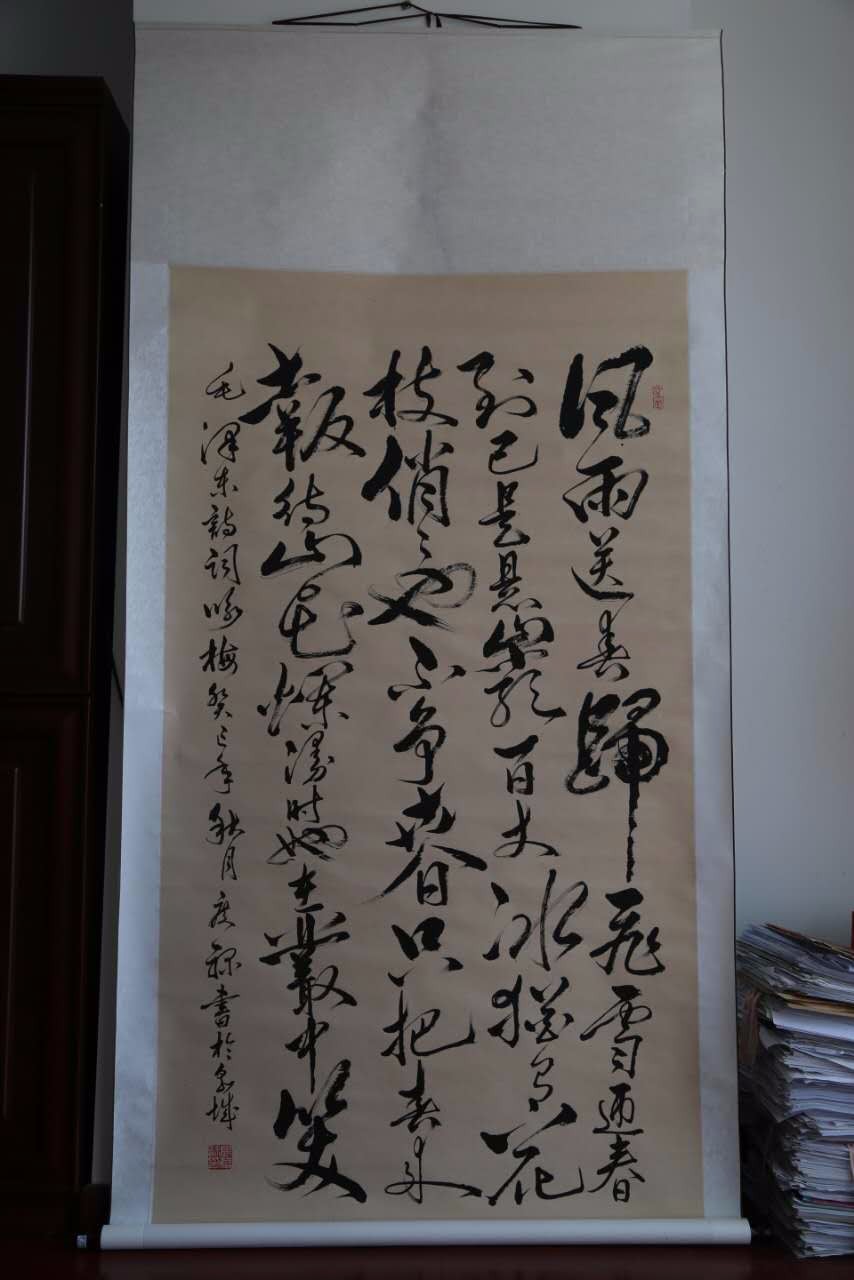 风雨送春歸飛雪迎春
到已是懸崖百丈冰猶有花
枝俏〻也不争春只把春来
報待山花爛漫时她在叢中笑
毛澤东詩詞咏梅癸巳年秋月書於泉城